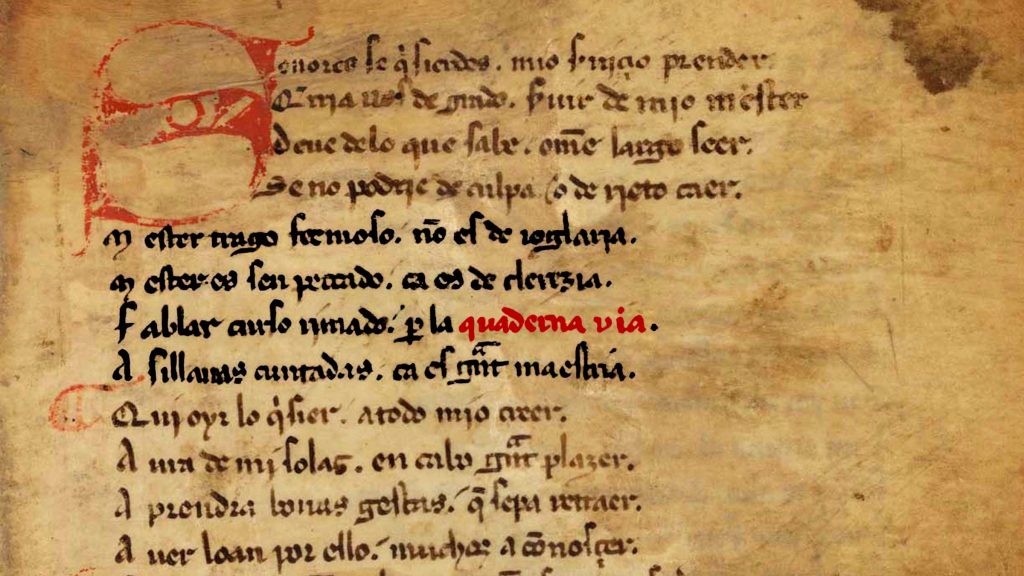 Senores se q̉sieredes. mio ſuiçio prender
Querria uos de grado. ſuir de mio meſter
Deue delo que ſabe. ome largo ſeer.
Se no podrie de culpa o de rieto caer.
M eſter trago fermoſo. nõ es de ioglaria.
M eſter es ſen peccado. ca es de clerezia.
F ablar curſo rimado. ꝑ la quaderna via.
A ſillauas cuntadas. ca es gᵃnt maeſtria.
Qui oyr lo q̉ſier. a todo mio creer.
A ura de mi ſolaz. en cabo gᵃnt plazer.
A prendra bonas geſtas. q̃ ſepa retraer.
A uer loan por ello. muchos a cõnosçer.